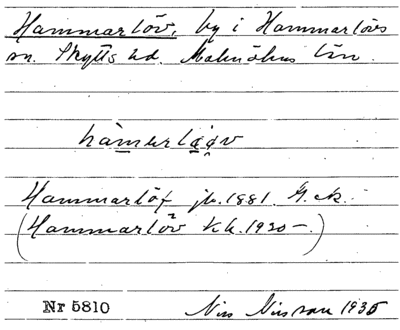 Hammarlöv, by i Hammarlövs
sn. Skytts hd. Malmöhus län.
Hammarlöf jb. 1881. G. ck.
(Hammarlöv kk. 1930–.)
Nr 5810
Nils Nilsson 1935